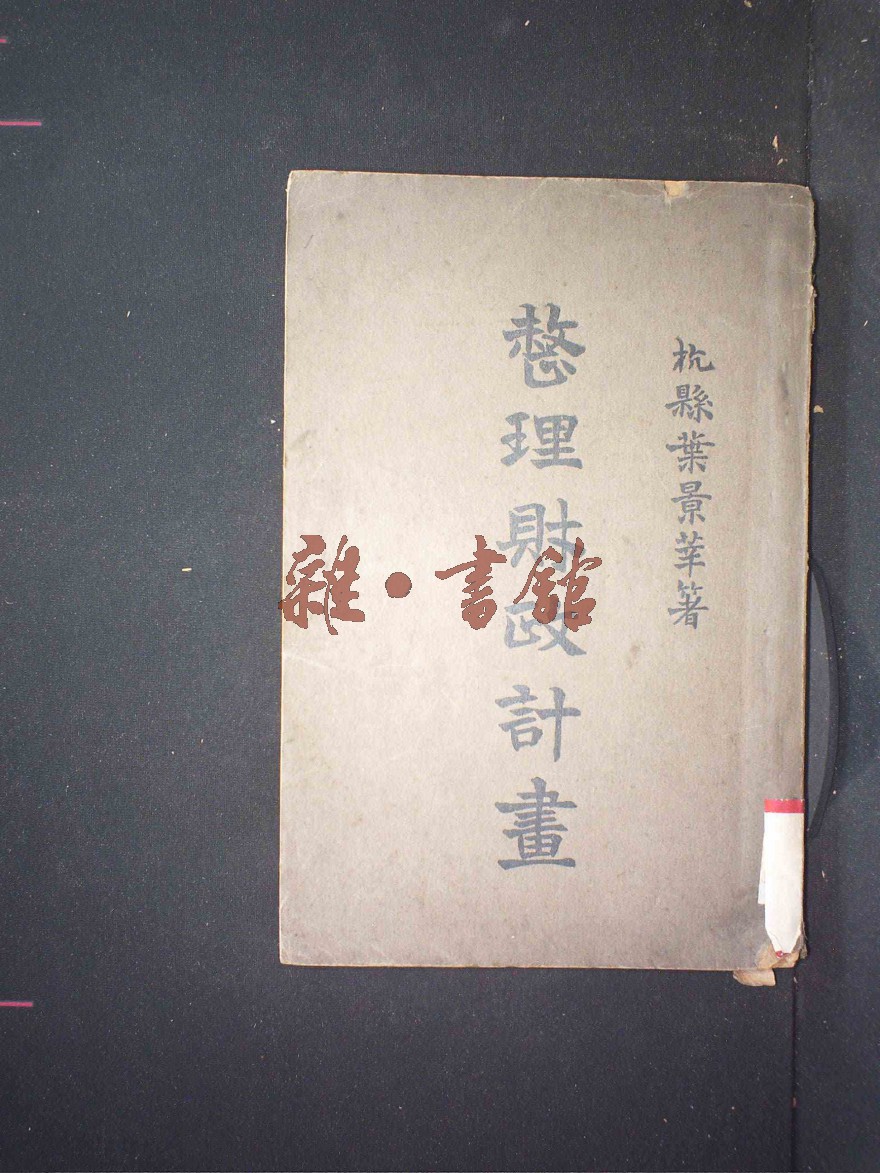 杭縣葉景莘箸
整理財政計畫
雜·書館